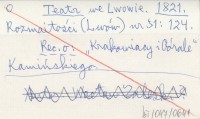 Teatr we Lwowie. 1821.
Rozmaitości (Lwów) nr 31: 124.
Rec. o: "Krakowiacy i Górale"
Kamińskiego